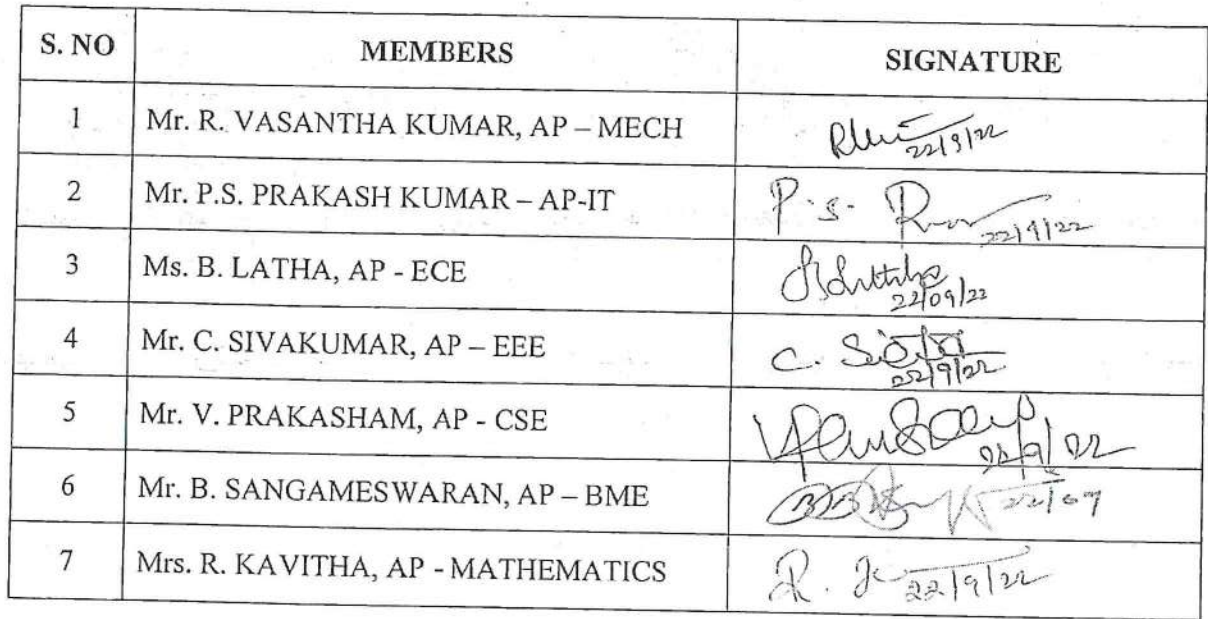 S. NO MEMBERS SIGNATURE
1 Mr. R. VASANTHA KUMAR, AP – MECH
22/9/22
2 Mr. P.S. PRAKASH KUMAR – AP-IT P.S.
22/9/22
3 Ms. B. LATHA, AP - ECE
22/09/22
4 Mr. C. SIVAKUMAR, AP – EEE C.
22/9/22
5 Mr. V. PRAKASHAM, AP - CSE
22/9/22
6 Mr. B. SANGAMESWARAN, AP – BME 22/09
7 Mrs. R. KAVITHA, AP - MATHEMATICS R.
22/9/22